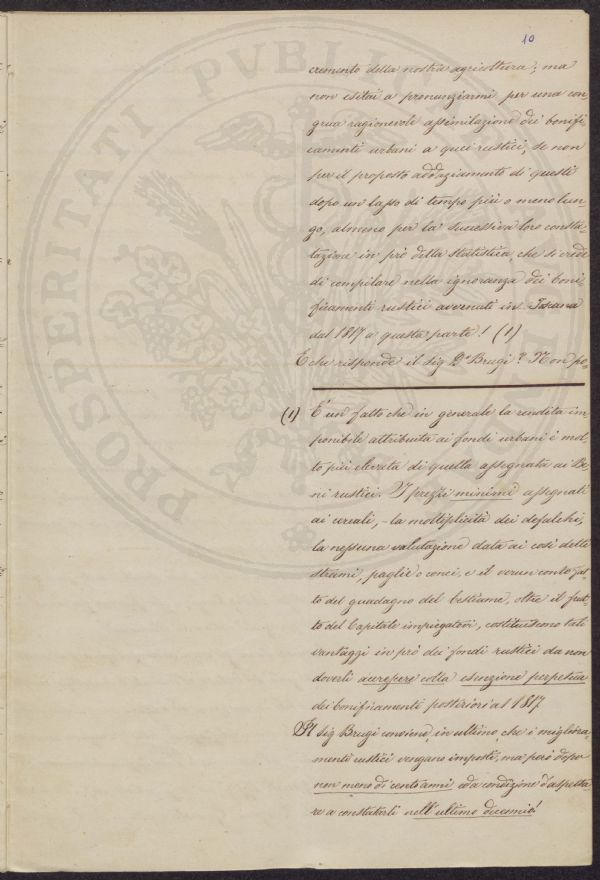 10
cremento della nostra agricoltura; ma
non esitai a pronunziarmi per una con,
grua ragionevole assimilazione dei bonifi
camenti urbani a quei rustici, se non
per il proposto addaziamento di questi
dopo un lasso di tempo più o meno lun,
go, almeno per la successiva loro consta,
tazione in prò della statistica, che si crede
di compilare nella ignoranza dei boni,
ficamenti rustici avvenuti in Toscana
dal 1817 a questa parte! (1)
E che risponde il Sig Dr Brugi? Non po,
(1) E' un fatto che in generale la rendita im
ponibile attribuita ai fondi urbani è mol
to più elevata di quella assegnata ai Be
ni rustici. I prezzi minimi assegnati
ai cereali, - la moltiplicità dei defalchi,
la nessuna valutazione data ai così detti
strami, paglie o conci, e il verun conto fat,
to del guadagno del bestiame, oltre il frut,
to del Capitale impiegatovi, costituiscono tali
vantaggi in prò dei fondi rustici da non
doverli accrescere colla esenzione perpetua
dei bonificamenti posteriori al 1817
Il Sig Brugi conviene, in ultimo, che i migliora,
menti rustici vengano imposti, ma però dopo
non meno di cento anni ed a condizione d'aspetta,
re a constatarli nell'ultimo decennio!
PROSPERITATI PVBLICAE